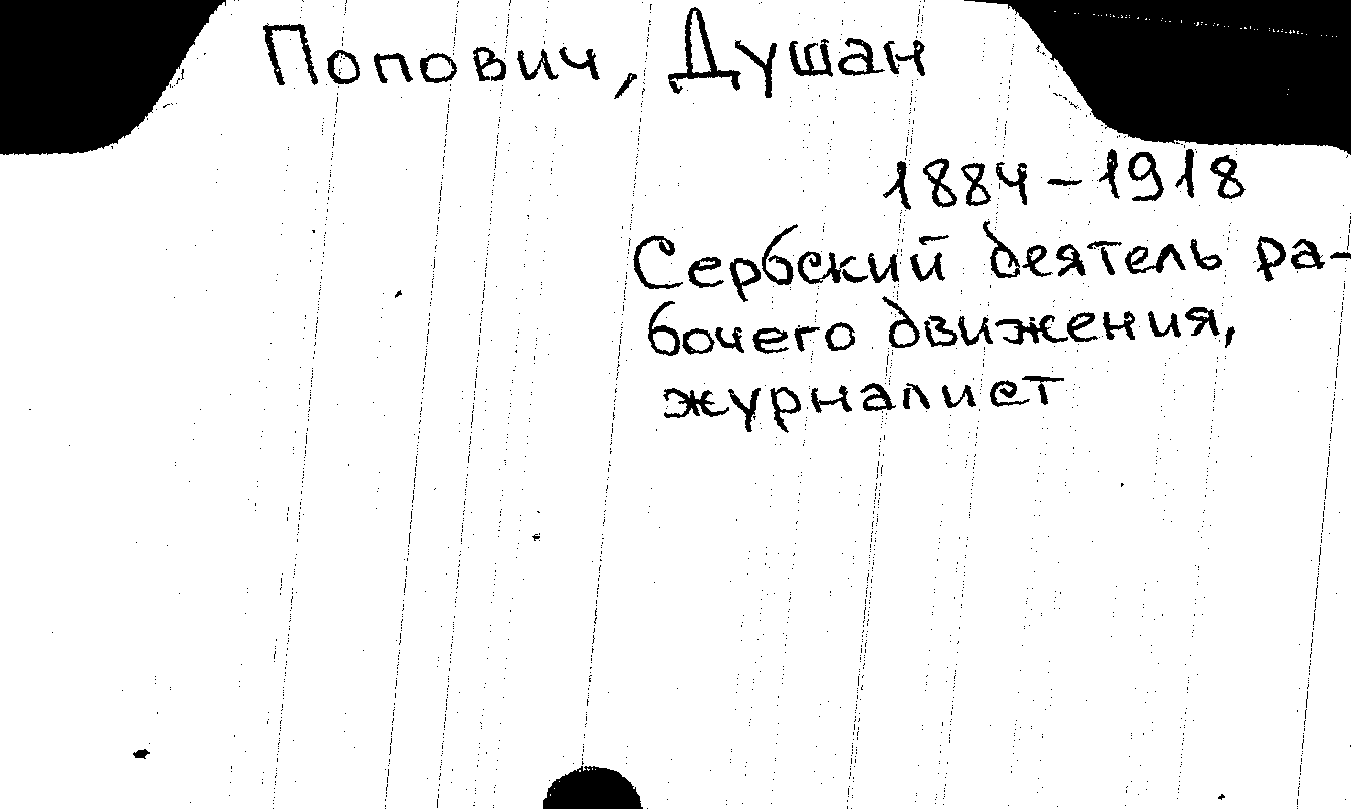 Попович, Душан
1884-1918
Сербский деятель ра-
бочего движения,
журналист